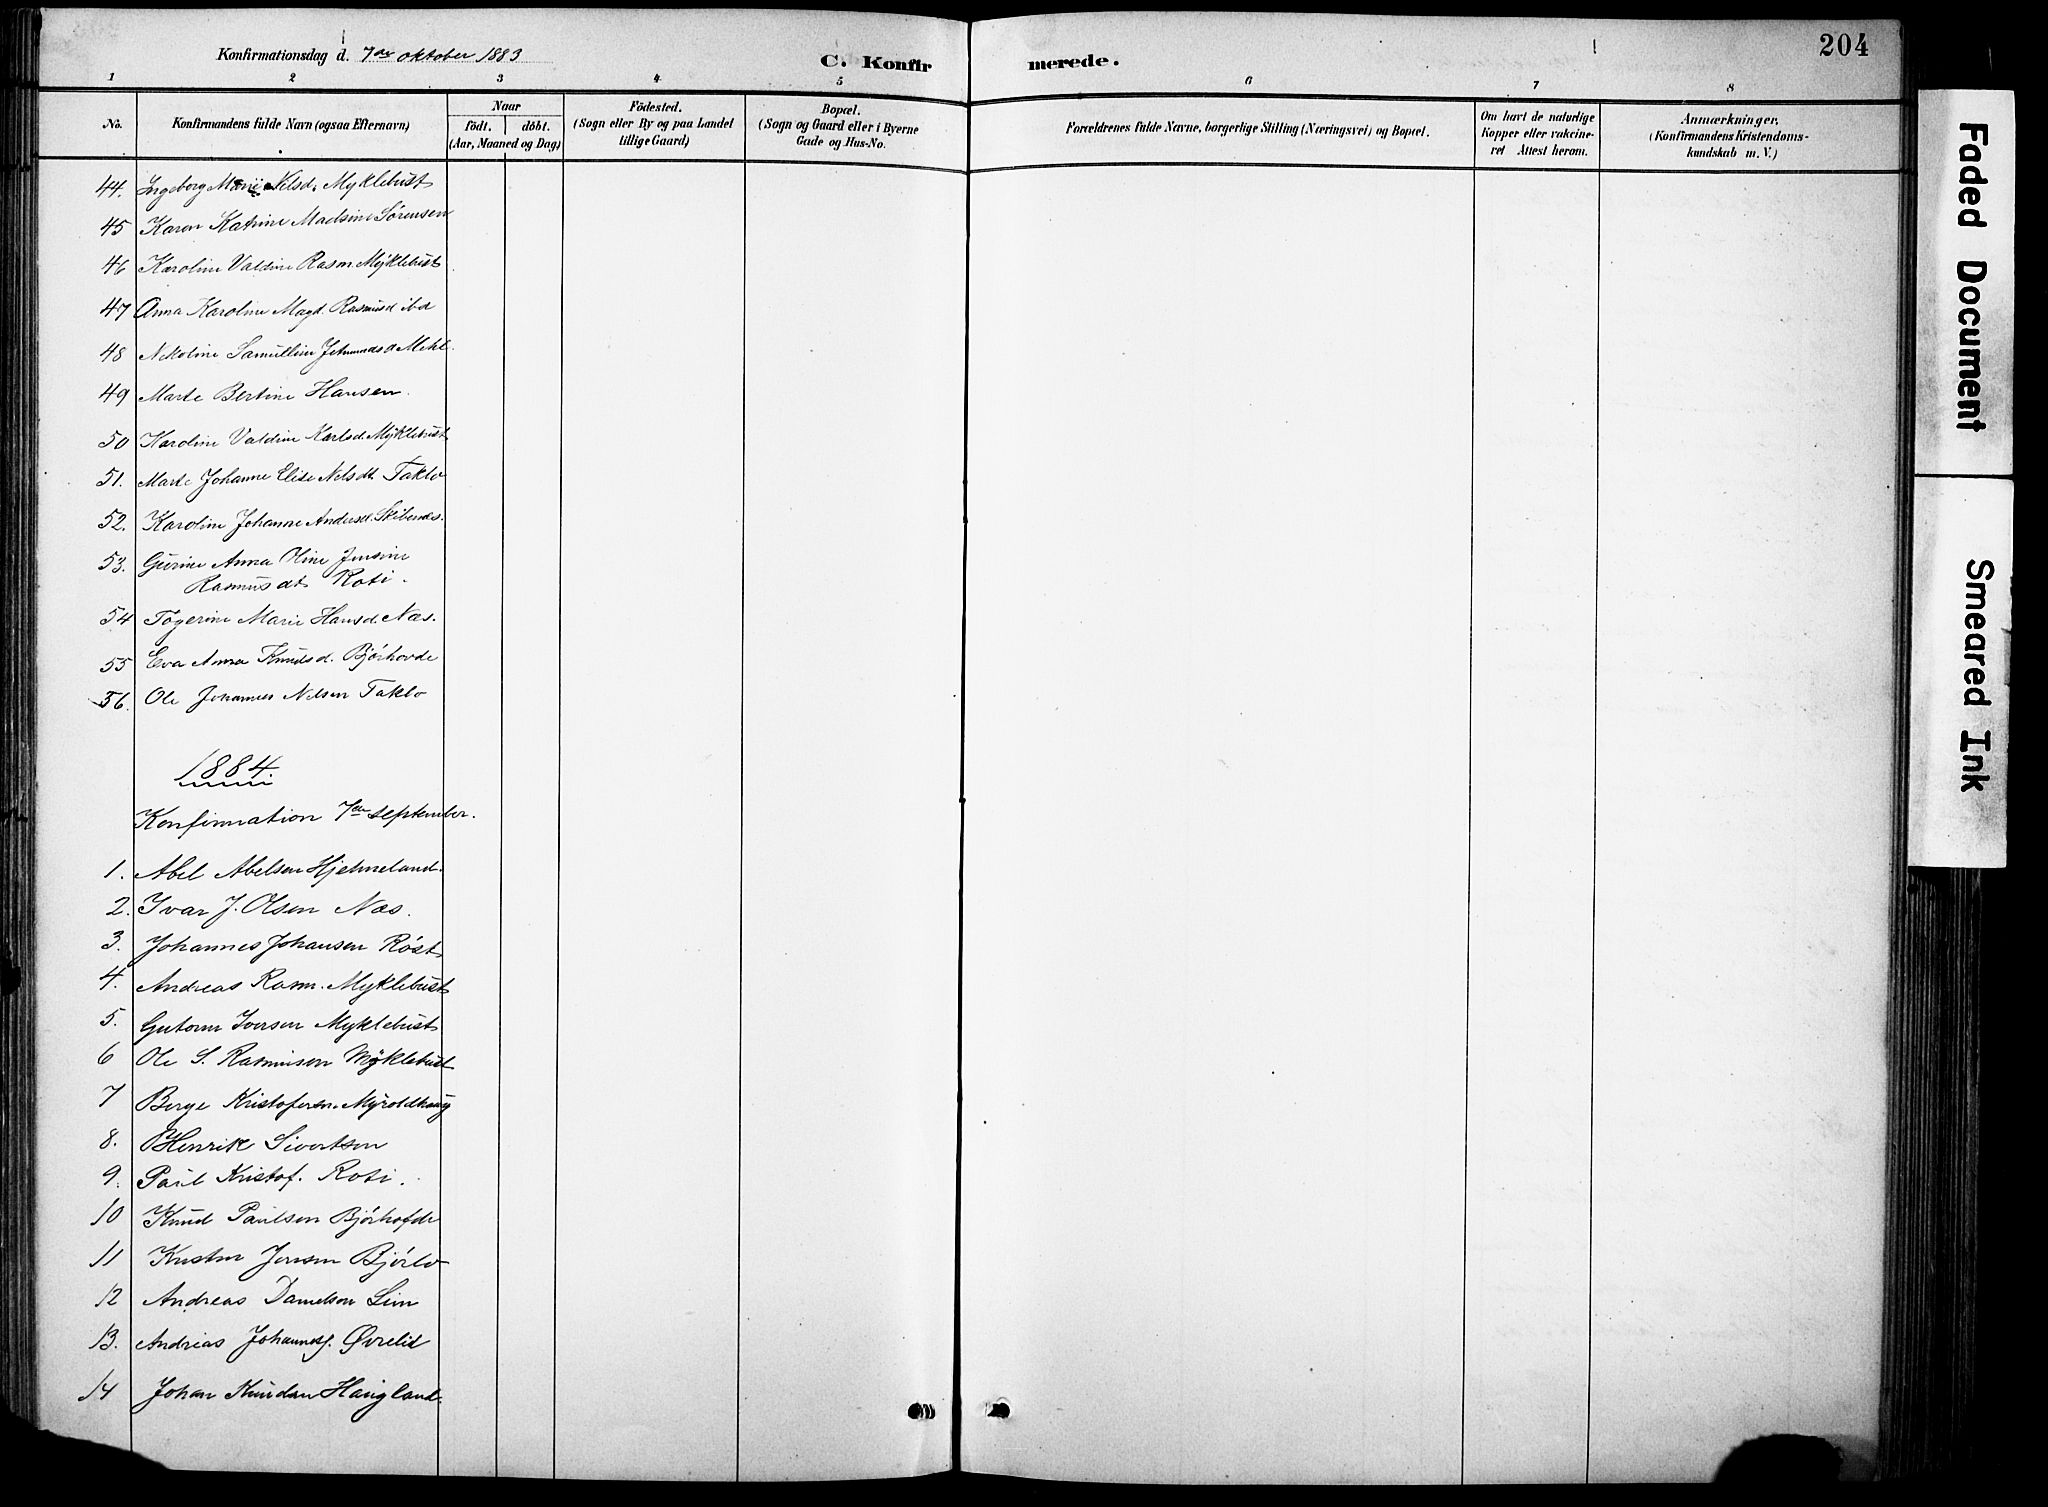 204
Konfirmationsdag d. 7de oktober 1883
C. Konfir merede.
1 2 3 4 5 6 7 8
No.
Konfirmandens fulde Navn (ogsaa Efternavn)
Naar
födt. döbt.
(Aar, Maaned og Dag)
Födested.
(Sogn eller By og paa Landet
tillige Gaard)
Bopæl.
(Sogn og Gaard eller i Byerne
Gade og Hus-No.
Forældrenes fulde Navne, borgerlige Stilling (Næringsvei) og Bopæl.
Om havt de naturlige
Kopper eller vakcine-
ret Attest herom.
Anmærkninger,
(Konfirmandens Kristendoms-
kundskab m. V.)
44. Ingeborg Marie Nilsd. Myklebust
45 Karen Katrine Madsine Sørensen
46 Karoline Valdine Rasm. Myklebust
47 Anna Karoline Magd. Rasmusd ibd
48 Nikoline Samulline d Mykl.
49 Marte Bertine Hansen.
50 Karoline Valdine Karlsd. Myklebust
51. Marte Johanne Elise Nelsdt Taklo
52. Karoline Johanne Andersd. Skibenes.
53. Gurine Anna Oline Jensine
Rasmusdt Roti.
54 Tøgerine Marie Hansd. Næs.
55 Eva Anna Knudsd. Bjørhovde
56. Ole Johannes Nelsen Taklo
1884.
Konfirmation 7de september.
1. Abel Abelsen Hjelmeland.
2. Ivar J. Olsen Næs.
3. Johannes Johansen Røst
4. Andreas Rasm. Myklebust
5. Gutorm Iversen Myklebust
6 Ole S. Rasmusen Myklebust
7 Berge Kristofersn. Myroldhaug
8. Henrik Sivertsen
9. Paul Kristof. Roti.
10 Knud Paulsen Bjørhofde
11 Kristen Jensen Bjørlo
12 Andreas Danielsen Lim
13. Andreas Johannes. Øvrelid
14 Johan Knudsen Haugland.
Faded Document
Smeared Ink